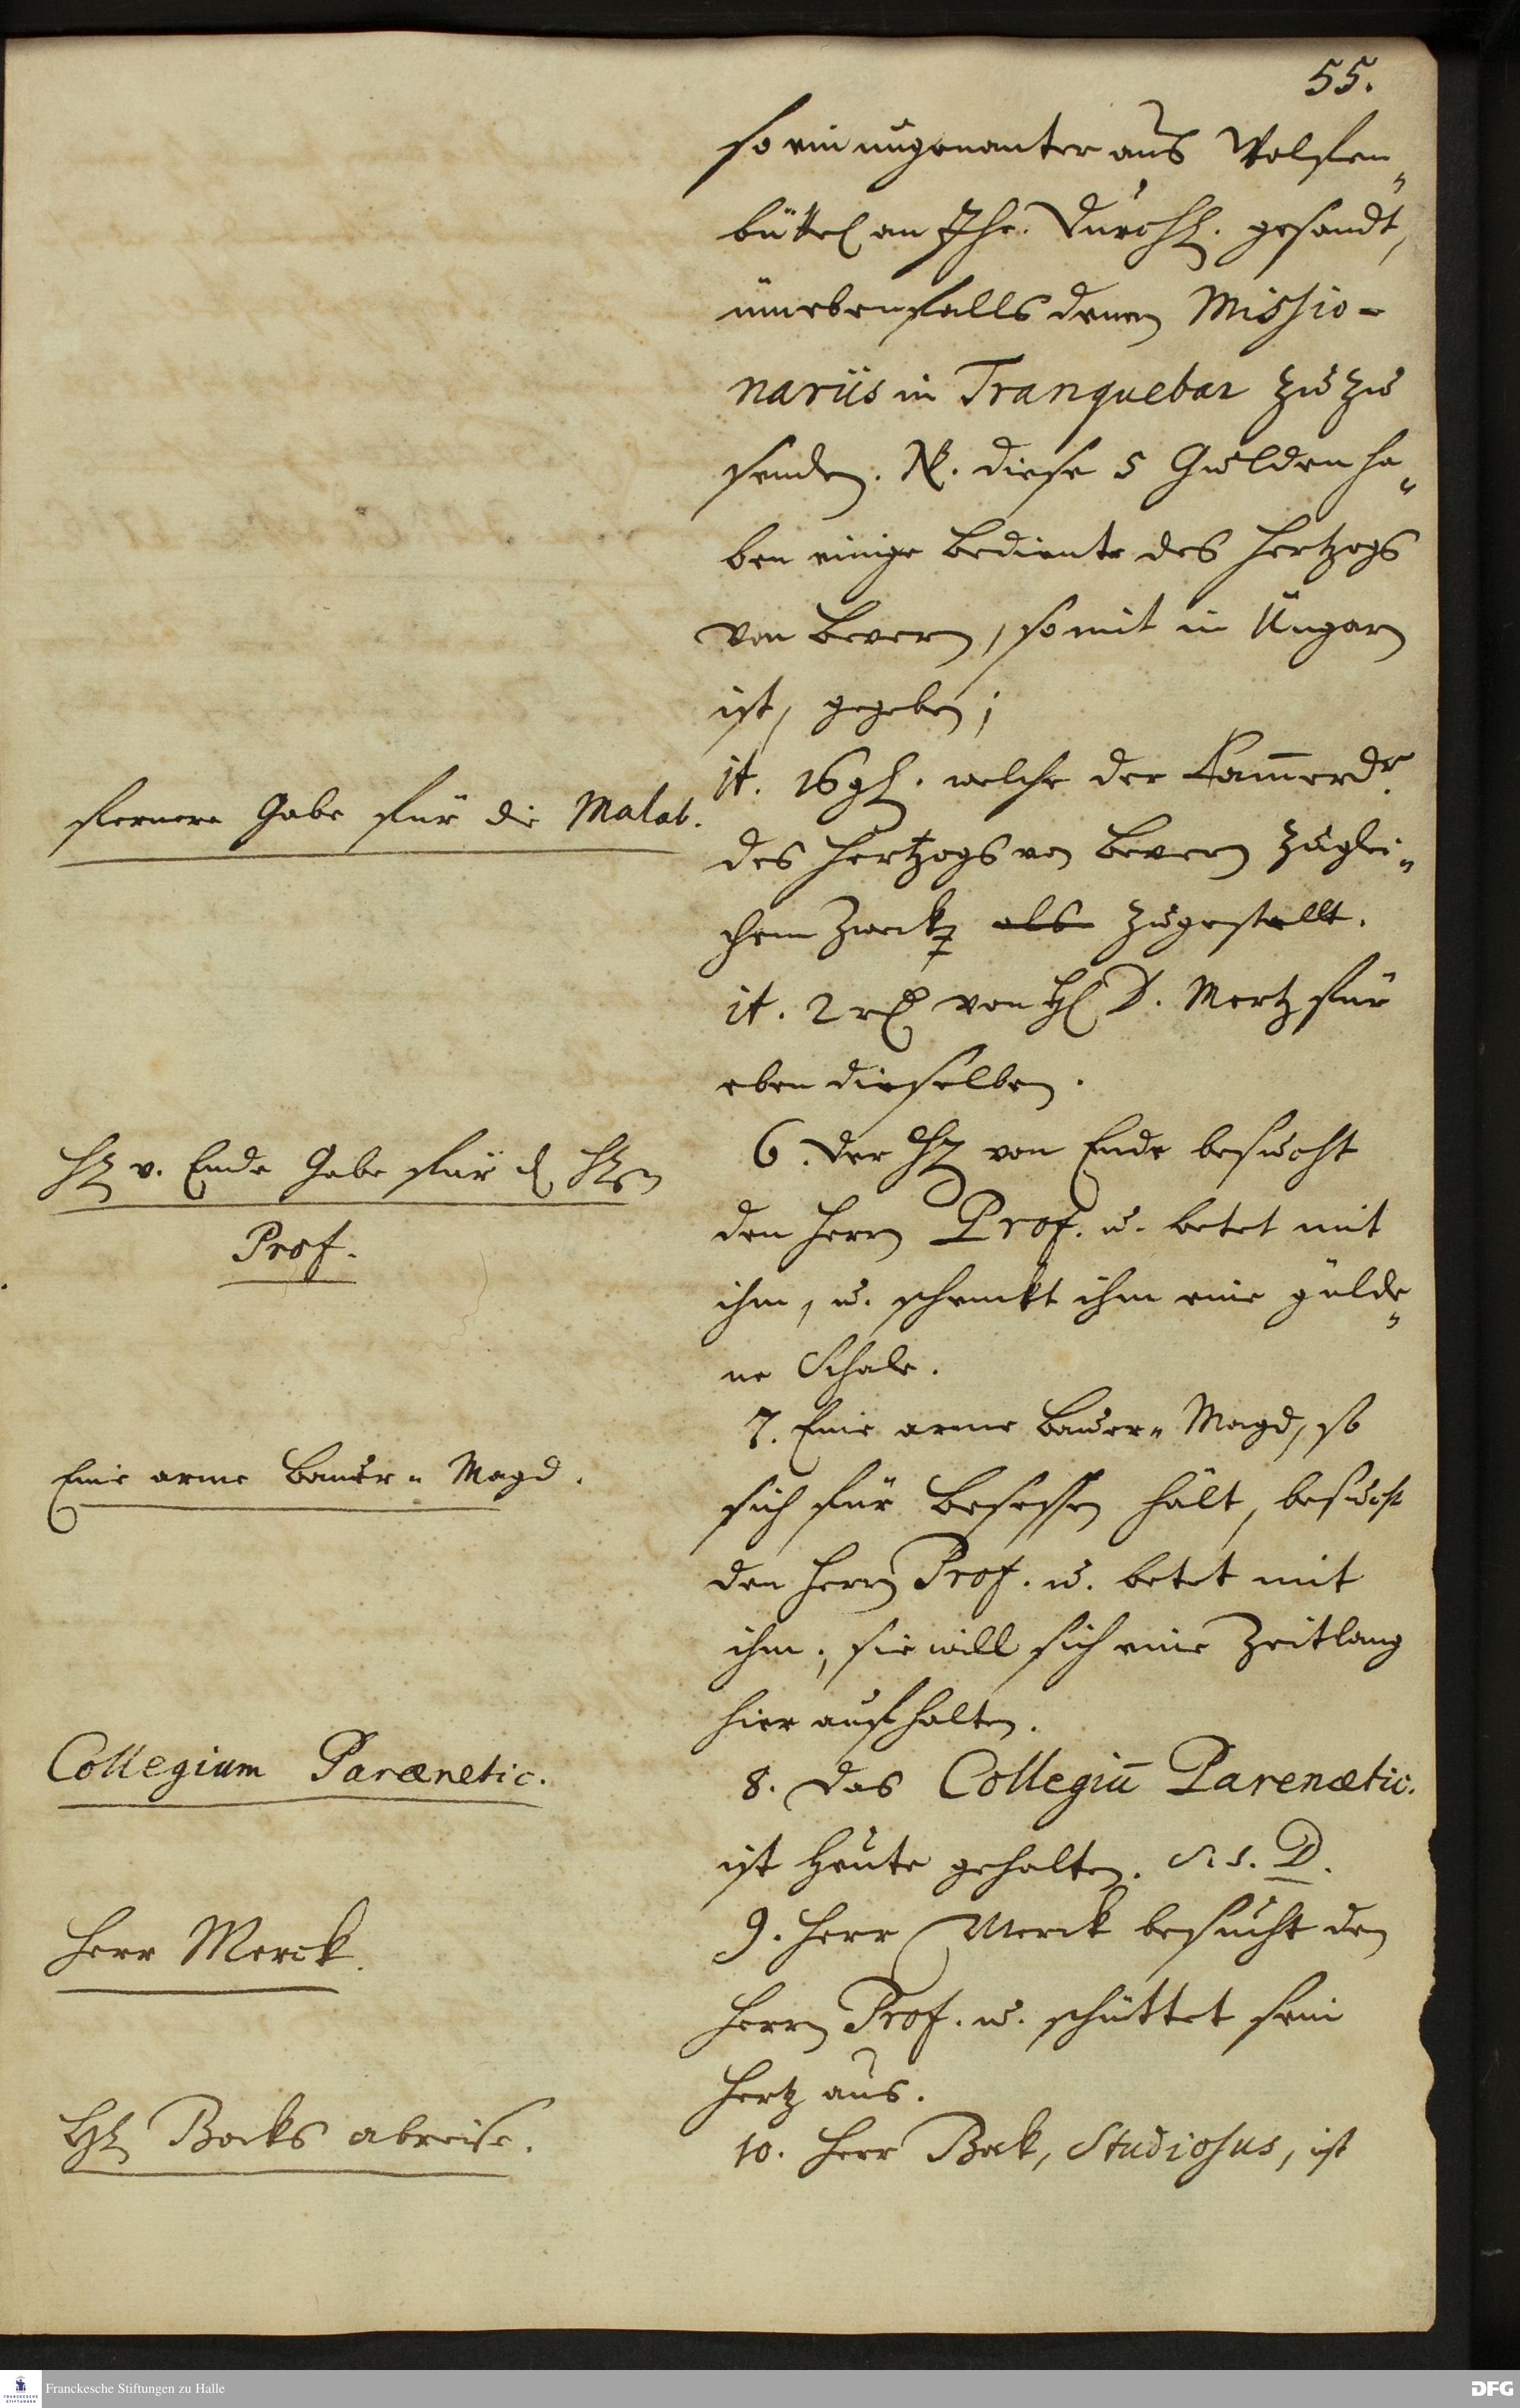 55.
so ein ungenanter aus Wolfen„
büttel an Ihr. Durchl. gesandt,
üm ebenfalls denen Missio-
nariis in Tranquebar zu zu
senden. NB. diese 5 Gulden ha„
ben einige Bediente des Hertzogs
von Bevern, so mit in Ungarn
ist, gegeben;
fernere Gabe für die Malab.
it. 16 gl. welche der Kam̄erdr.
des Hertzogs von Bevern zu glei„
chem Zweck als zugestellt.
it. 2 rl von H. D. Mertz für
eben dieselben.
H. v. Ende Gabe für d. Hrn
Prof.
6. Der H. von Ende besucht
den Herrn Prof. u. betet mit
ihm, u. schenckt ihm eine gülde„
ne Schale.
Eine arme Bauer„ Magd.
7. Eine arme Bauer„ Magd, so
sich für besessen hält, besucht
den Herrn Prof. u. betet mit
ihm; sie will sich eine Zeitlang
hier aufhalten.
Collegium Parænetic.
8. Das Collegiū Parenætic.
ist heute gehalten. D.
Herr Merck.
9. Herr Merck besucht den
Herrn Prof. u. schüttet sein
Hertz aus.
H. Bocks abreise.
10. Herr Bock, Studiosus, ist
Franckesche Stiftungen zu Halle
DFG